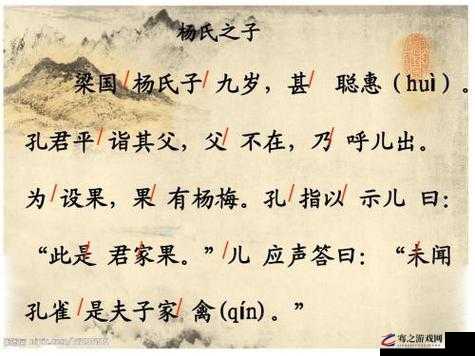 杨氏之子
梁国/杨氏子/九岁，甚/聪惠（huì）。
孔君平/诣其父，父/不在，乃/呼儿出。
为/设果，果/有杨梅。孔/指以/示儿/曰：
“此是/君家果。”/儿/应声答曰：“未闻
孔雀/是夫子家/禽(qín)。”
弯之游戏网